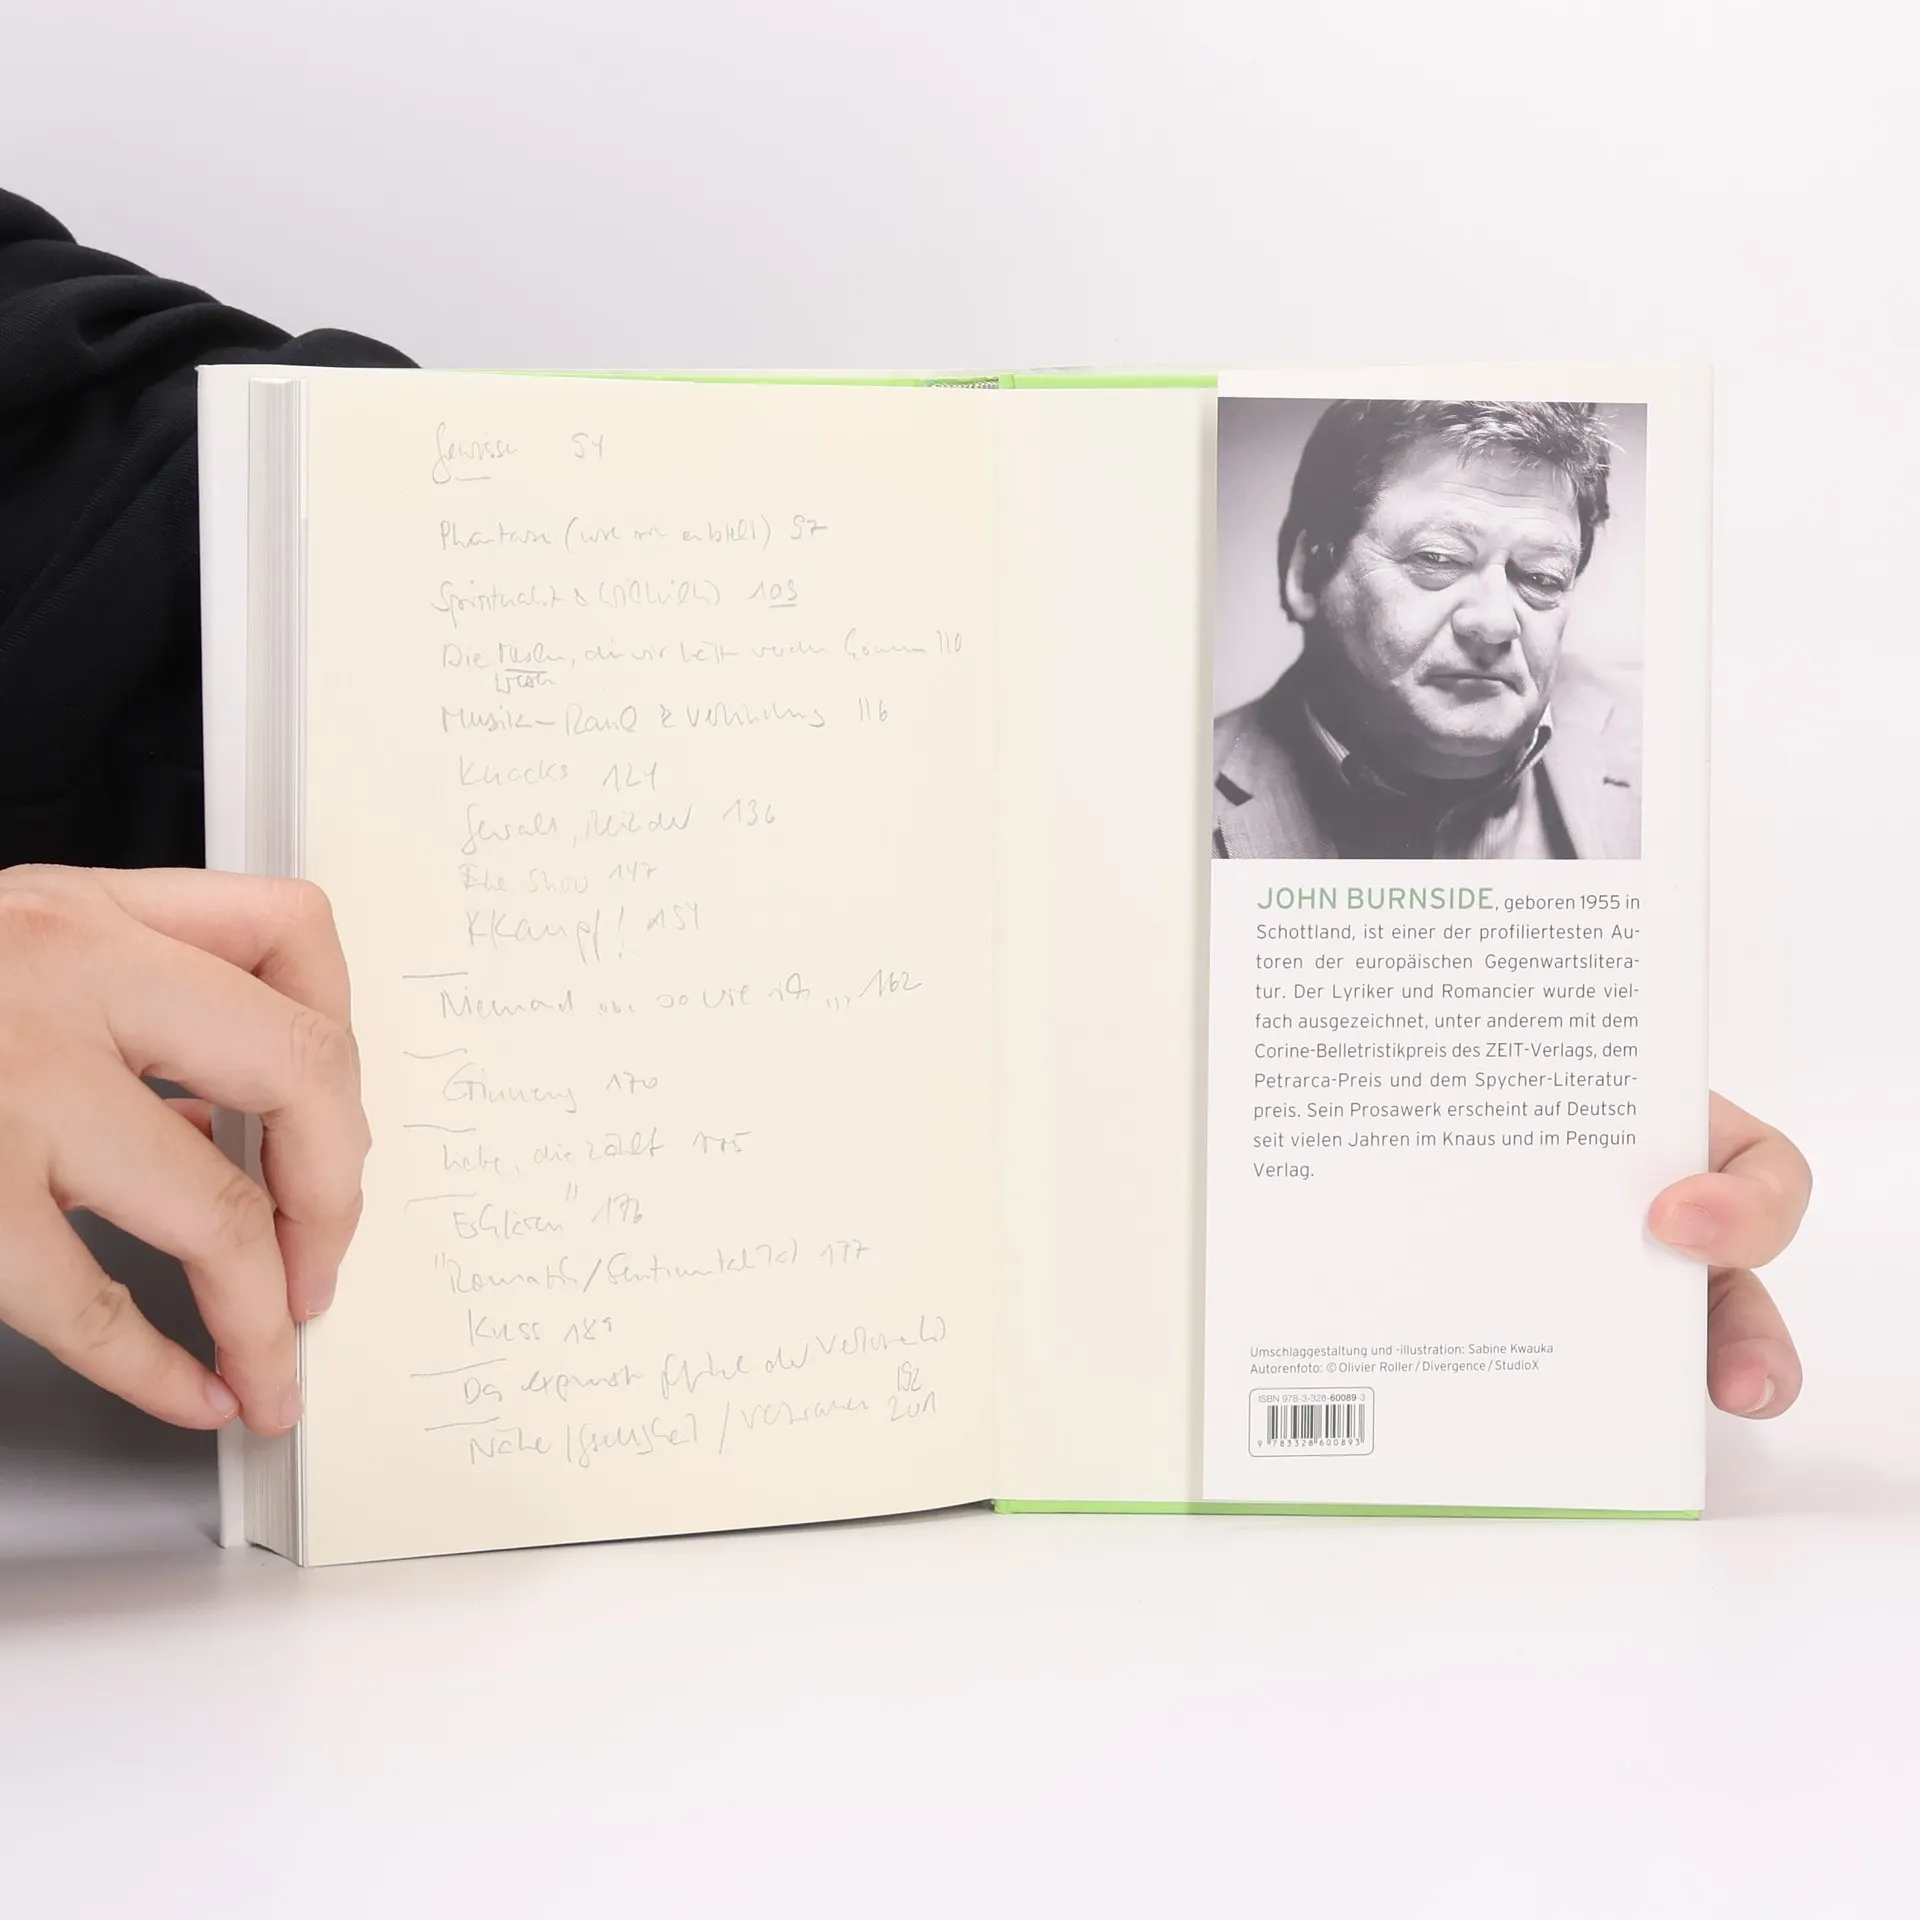 54
Phantasie (wie man erzählt) 97
103
Die, die wir 110
Musik – & Verbindung 116
Knacks 124
Gewalt, 136
The Show 147
KKampf! 154
Niemand ... so wie ich ... 162
Erinnerung 170
Liebe, die zählt 175
"Erklären" 176
Romantik/Sentimentalität 177
Kuss 189
der 192
Nähe / / Vertrauen 201
JOHN BURNSIDE, geboren 1955 in
Schottland, ist einer der profiliertesten Au-
toren der europäischen Gegenwartslitera-
tur. Der Lyriker und Romancier wurde viel-
fach ausgezeichnet, unter anderem mit dem
Corine-Belletristikpreis des ZEIT-Verlags, dem
Petrarca-Preis und dem Spycher-Literatur-
preis. Sein Prosawerk erscheint auf Deutsch
seit vielen Jahren im Knaus und im Penguin
Verlag.
Umschlaggestaltung und -illustration: Sabine Kwauka
Autorenfoto: © Olivier Roller / Divergence / StudioX
ISBN 978-3-328-60089-3
9 783328 600893